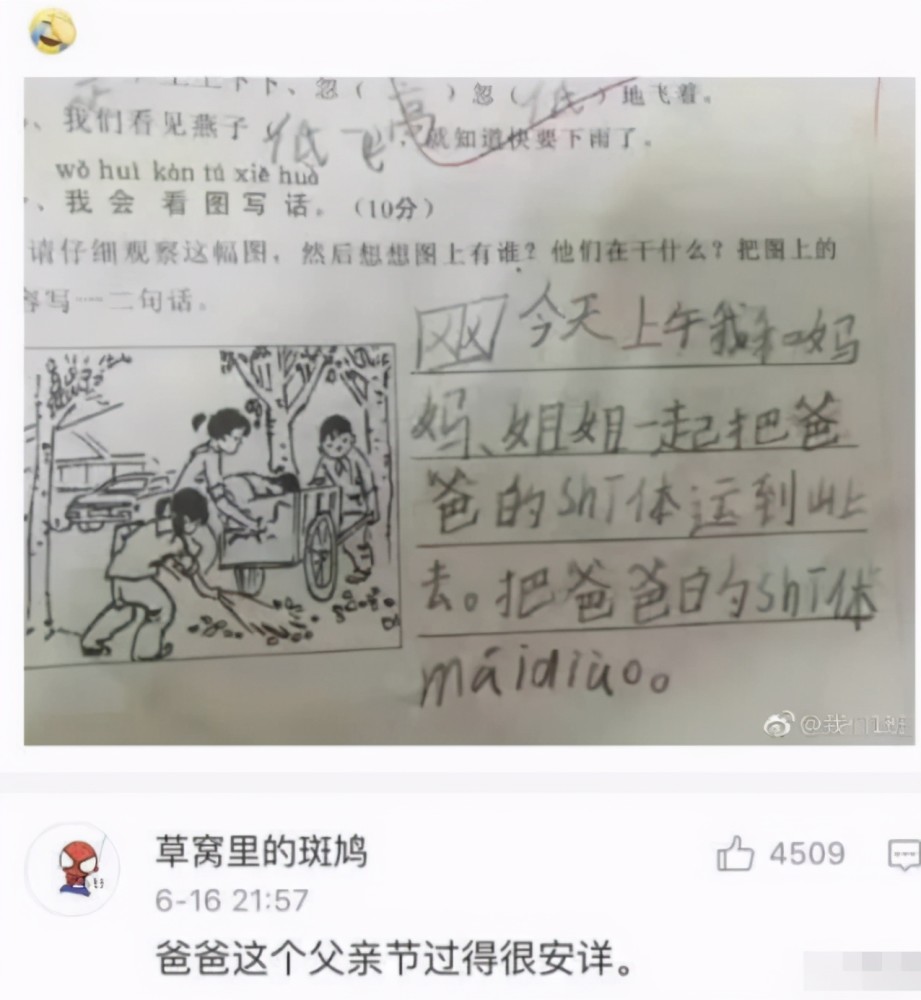 上上下下、忽(高)忽(低)地飞着。
、我们看见燕子低飞,就知道快要下雨了。
wǒ huì kàn tú xiě huà
、我会看图写话。(10分)
请仔细观察这幅图,然后想想图上有谁?他们在干什么?把图上的
容写一二句话。
今天上午我和妈
妈、姐姐一起把爸
爸的shī体运到山上
去。把爸爸的shī体
máidiào。
@我们1班
草窝里的斑鸠
4509
6-16 21:57
爸爸这个父亲节过得很安详。